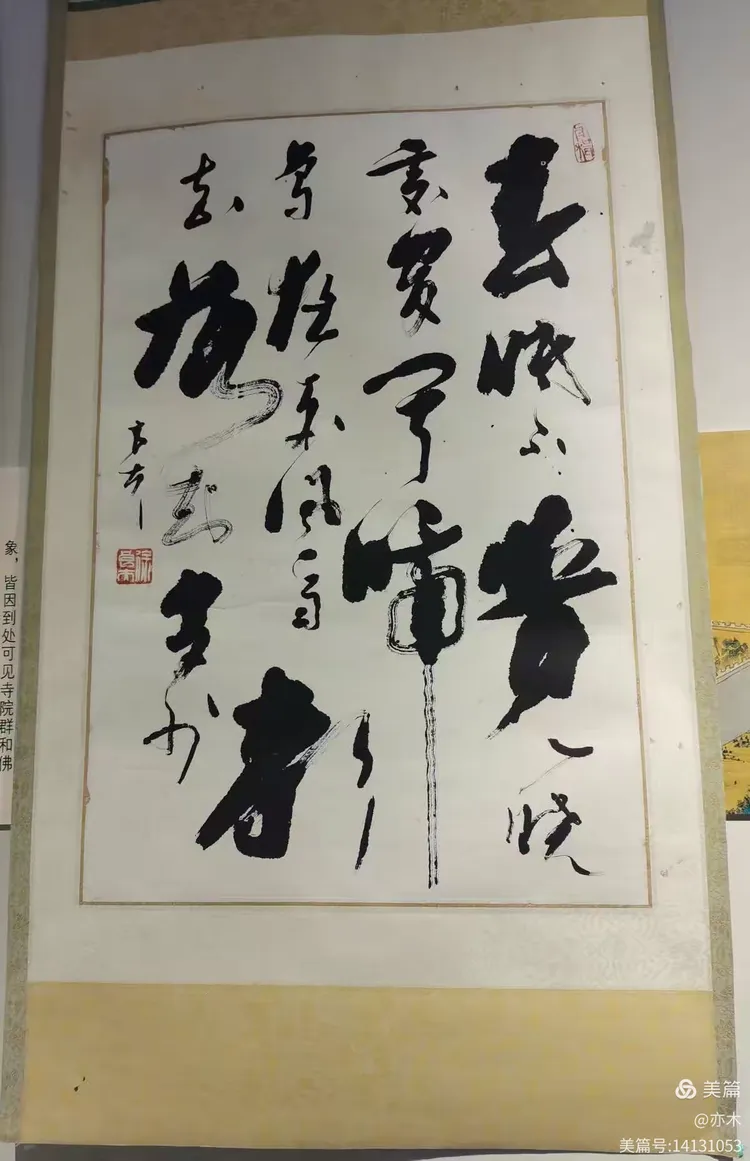 春眠不覺曉
處處聞啼
鳥夜來風雨聲
花落知多少
象，皆因到处可见寺院群和佛
美篇
@亦木
美篇号:14131053